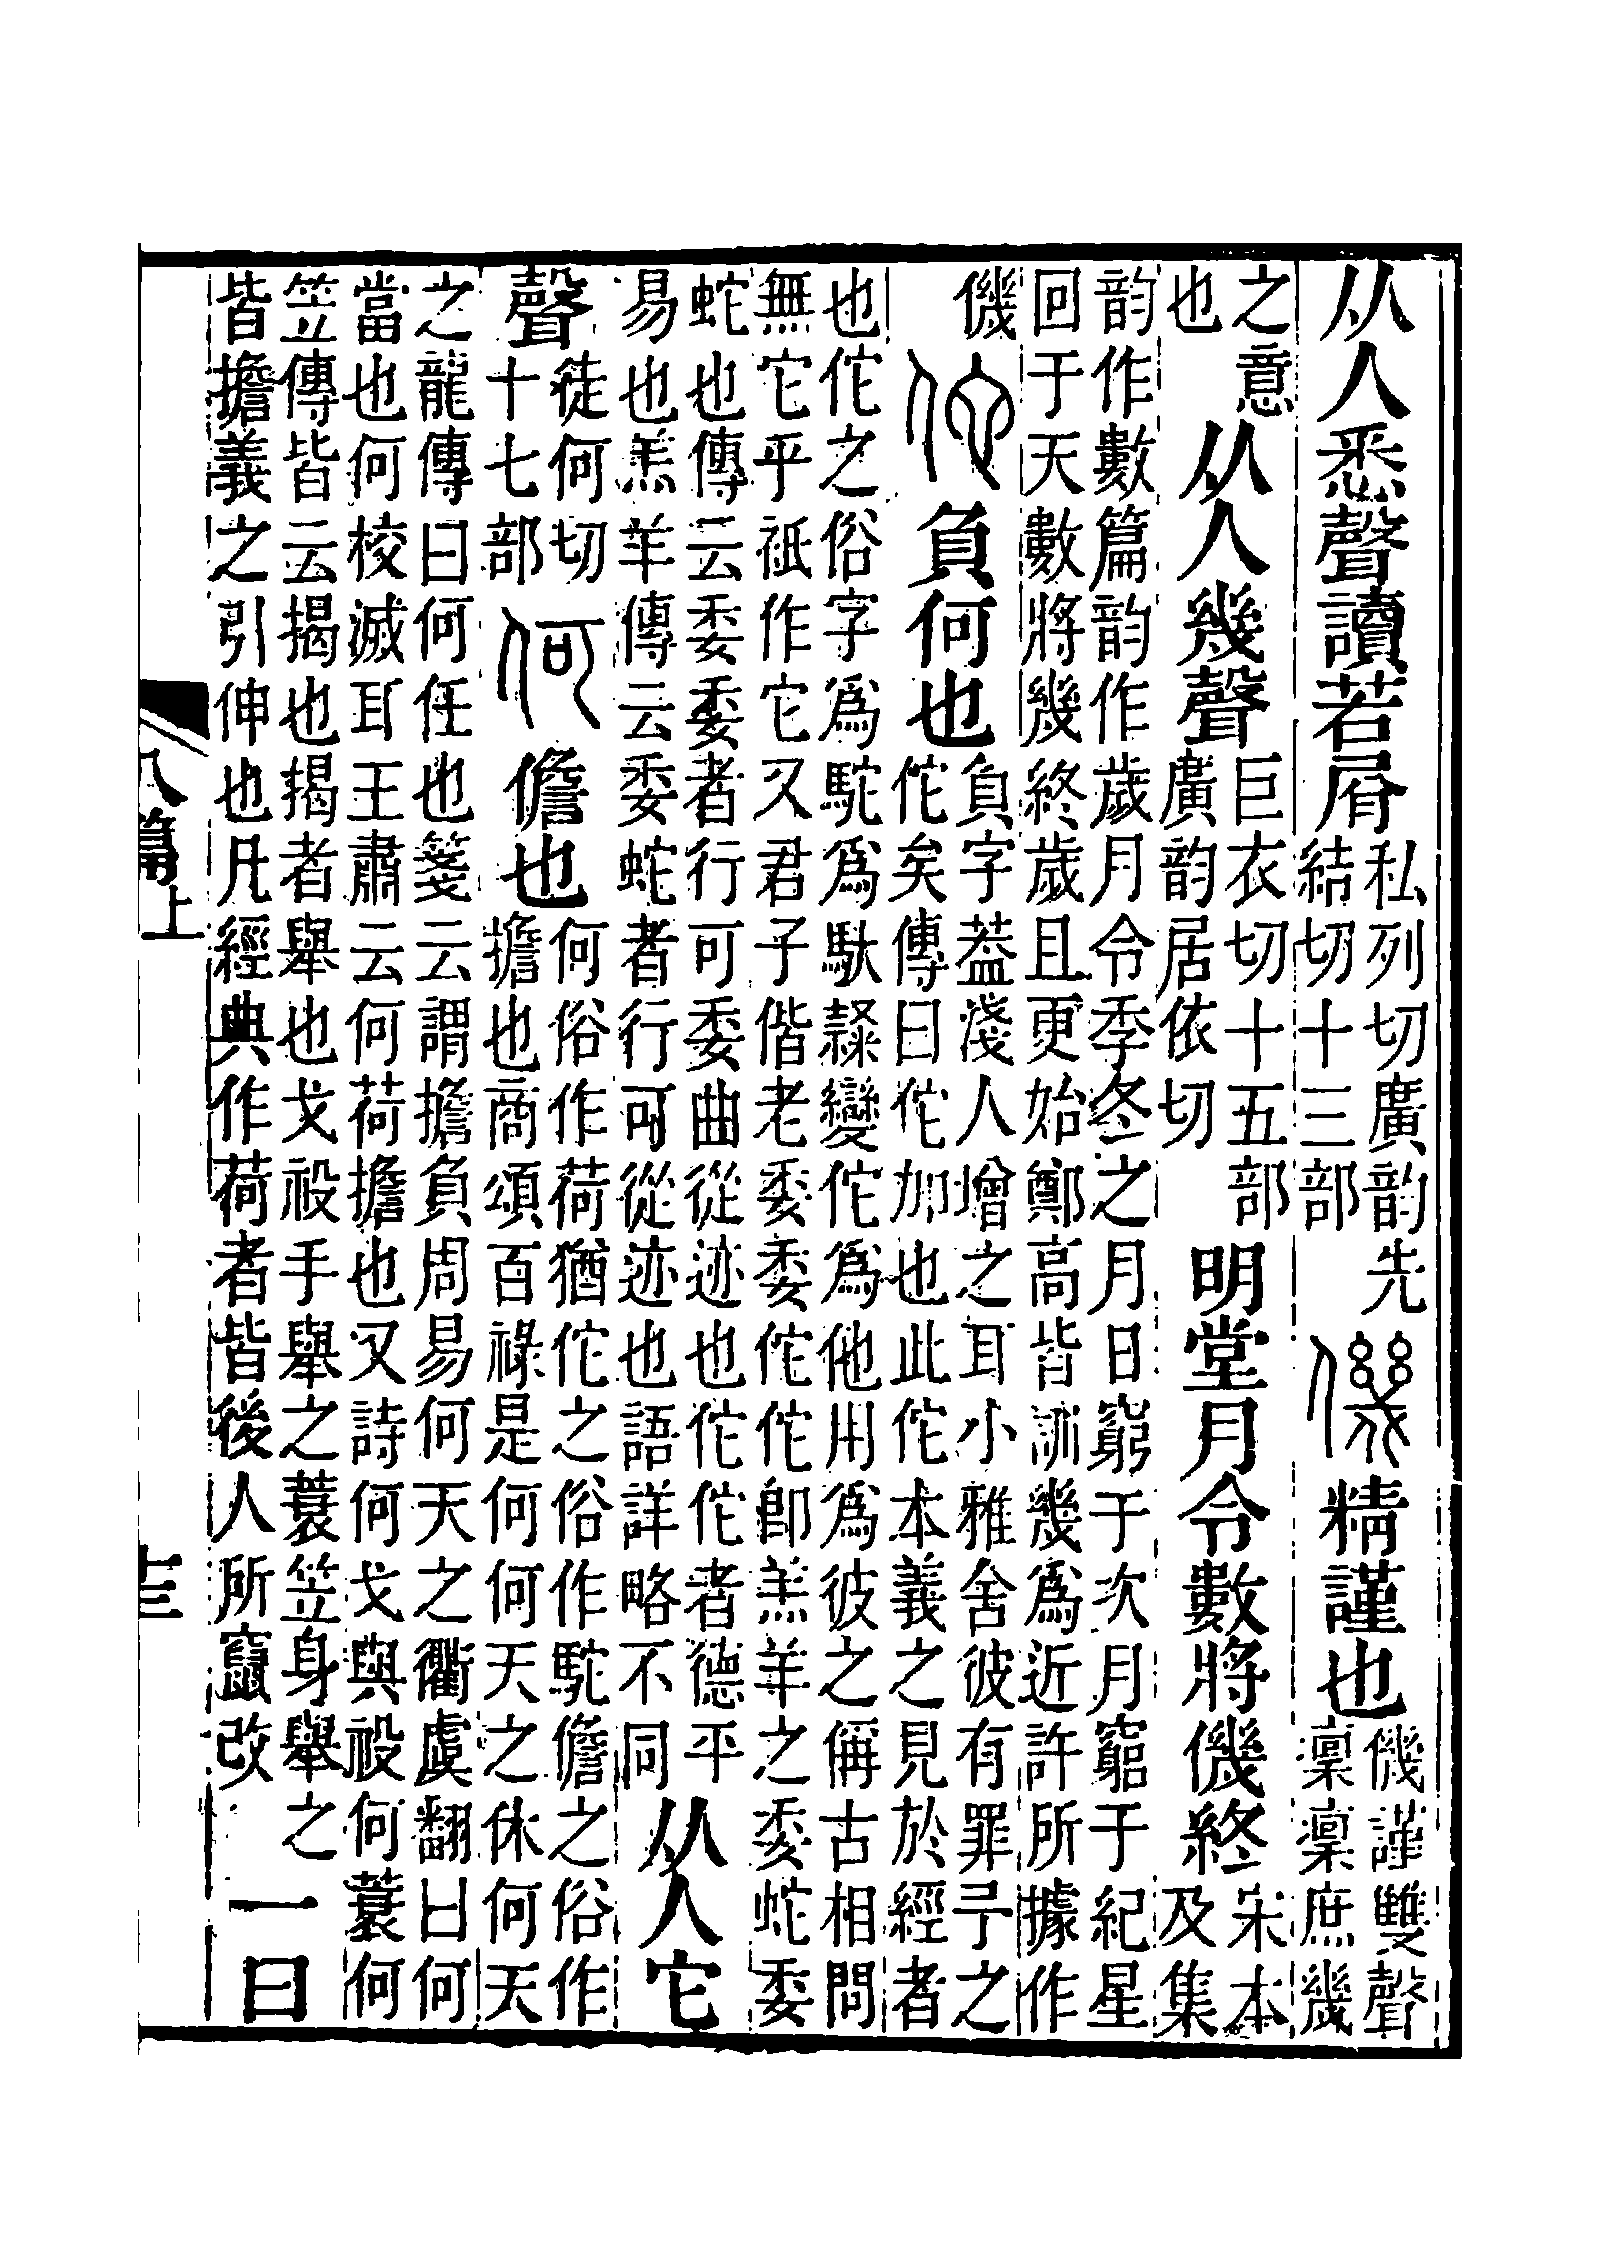 从人悉聲讀若屑私列切廣韵先結切十三部僟精謹也僟謹雙聲稟稟庶幾
之意也从人幾聲巨衣切十五部廣韵居依切明堂月令數將僟終宋本及集
韵作數篇韵作歲月令季冬之月日窮于次月窮于紀星
回于天數將幾終歲且更始鄭高皆訓幾爲近許所據作
僟佗負何也負字葢淺人增之耳小雅舍彼有罪予之佗矣傳曰佗加也此佗本義之見於經者
也佗之俗字爲駝爲馱隷變佗爲他用爲彼之偁古相問
無它乎祇作它又君子偕老委委佗佗卽羔羊之委蛇委
蛇也傳云委委者行可委曲從迹也佗佗者德平
易也羔羊傳云委蛇者行可從迹也語詳略不同从人它
聲徒何切十七部何儋也何俗作荷猶佗之俗作駝儋之俗作擔也商頌百祿是何何天之休何天
之龍傳曰何任也箋云謂擔負周易何天之衢虞翻曰何
當也何校滅耳王肅云何荷擔也又詩何戈與祋何蓑何
笠傳皆云揭也揭者舉也戈祋手舉之蓑笠身舉之
皆擔義之引伸也凡經典作荷者皆後人所竄改一曰
八篇上
十三